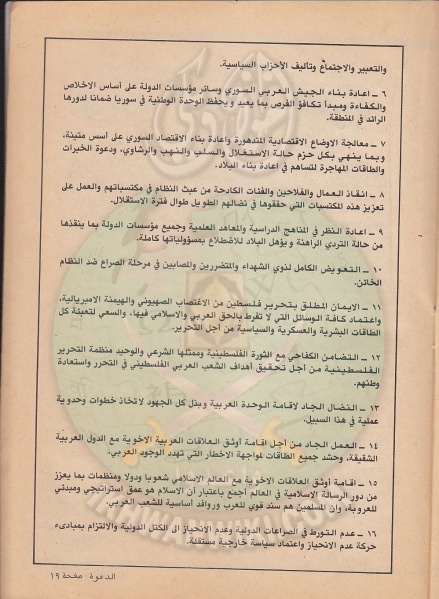 والتعبير والاجتماع وتأليف الأحزاب السياسية.
٦ ـ اعادة بناء الجيش العربي السوري وسائر مؤسسات الدولة على أساس الاخلاص
والكفاءة ومبدأ تكافؤ الفرص بما يعيد ويحفظ الوحدة الوطنية في سوريا ضمانا لدورها
الرائد في المنطقة.
٧ ـ معالجة الاوضاع الاقتصادية المتدهورة واعادة بناء الاقتصاد السوري على أسس متينة،
وبما ينهي بكل حزم حالة الاستغلال والسلب والنهب والرشاوي، ودعوة الخبرات
والطاقات المهاجرة لتساهم في اعادة بناء البلاد.
٨ ـ انقاذ العمال والفلاحين والفئات الكادحة من عبث النظام في مكتسباتهم والعمل على
تعزيز هذه المكتسبات التي حققوها في نضالهم الطويل طوال فترة الاستقلال.
٩ ـ اعادة النظر في المناهج الدراسية والمعاهد العلمية وجميع مؤسسات الدولة بما ينقذها
من حالة التردي الراهنة ويؤهل البلاد للاضطلاع بمسؤولياتها كاملة.
١٠ ـ التعويض الكامل لذوي الشهداء والمتضررين والمصابين في مرحلة الصراع ضد النظام
الخائن.
١١ ـ الايمان المطلق بتحرير فلسطين من الاغتصاب الصهيوني والهيمنة الامبريالية،
واعتماد كافة الوسائل التي لا تفرط بالحق العربي والاسلامي فيها، والسعي لتعبئة كل
الطاقات البشرية والعسكرية والسياسية من أجل التحرير.
١٢ ـ التضامن الكفاحي مع الثورة الفلسطينية وممثلها الشرعي والوحيد منظمة التحرير
الفلسطينية من أجل تحقيق أهداف الشعب العربي الفلسطيني في التحرر واستعادة
وطنهم.
١٣ ـ النضال الجاد لاقامة الوحدة العربية وبذل كل الجهود لاتخاذ خطوات وحدوية
عملية في هذا السبيل.
١٤ ـ العمل الجاد من أجل اقامة أوثق العلاقات العربية الاخوية مع الدول العربية
الشقيقة، وحشد جميع الطاقات لمواجهة الاخطار التي تهدد الوجود العربي.
١٥ ـ اقامة أوثق العلاقات الاخوية مع العالم الاسلامي شعوبا ودولا ومنظمات بما يعزز
من دور الرسالة الإسلامية في العالم أجمع باعتبار أن الاسلام هو عمق استراتيجي ومبدئي
للعروبة، وإن المسلمين هم سند قوي للعرب وروافد أساسية للشعب العربي.
١٦ ـ عدم التورط في الصراعات الدولية وعدم الانحياز الى الكتل الدولية والالتزام بمبادىء
حركة عدم الانحياز واعتماد سياسة خارجية مستقلة.
الدعوة صفحة ١٩